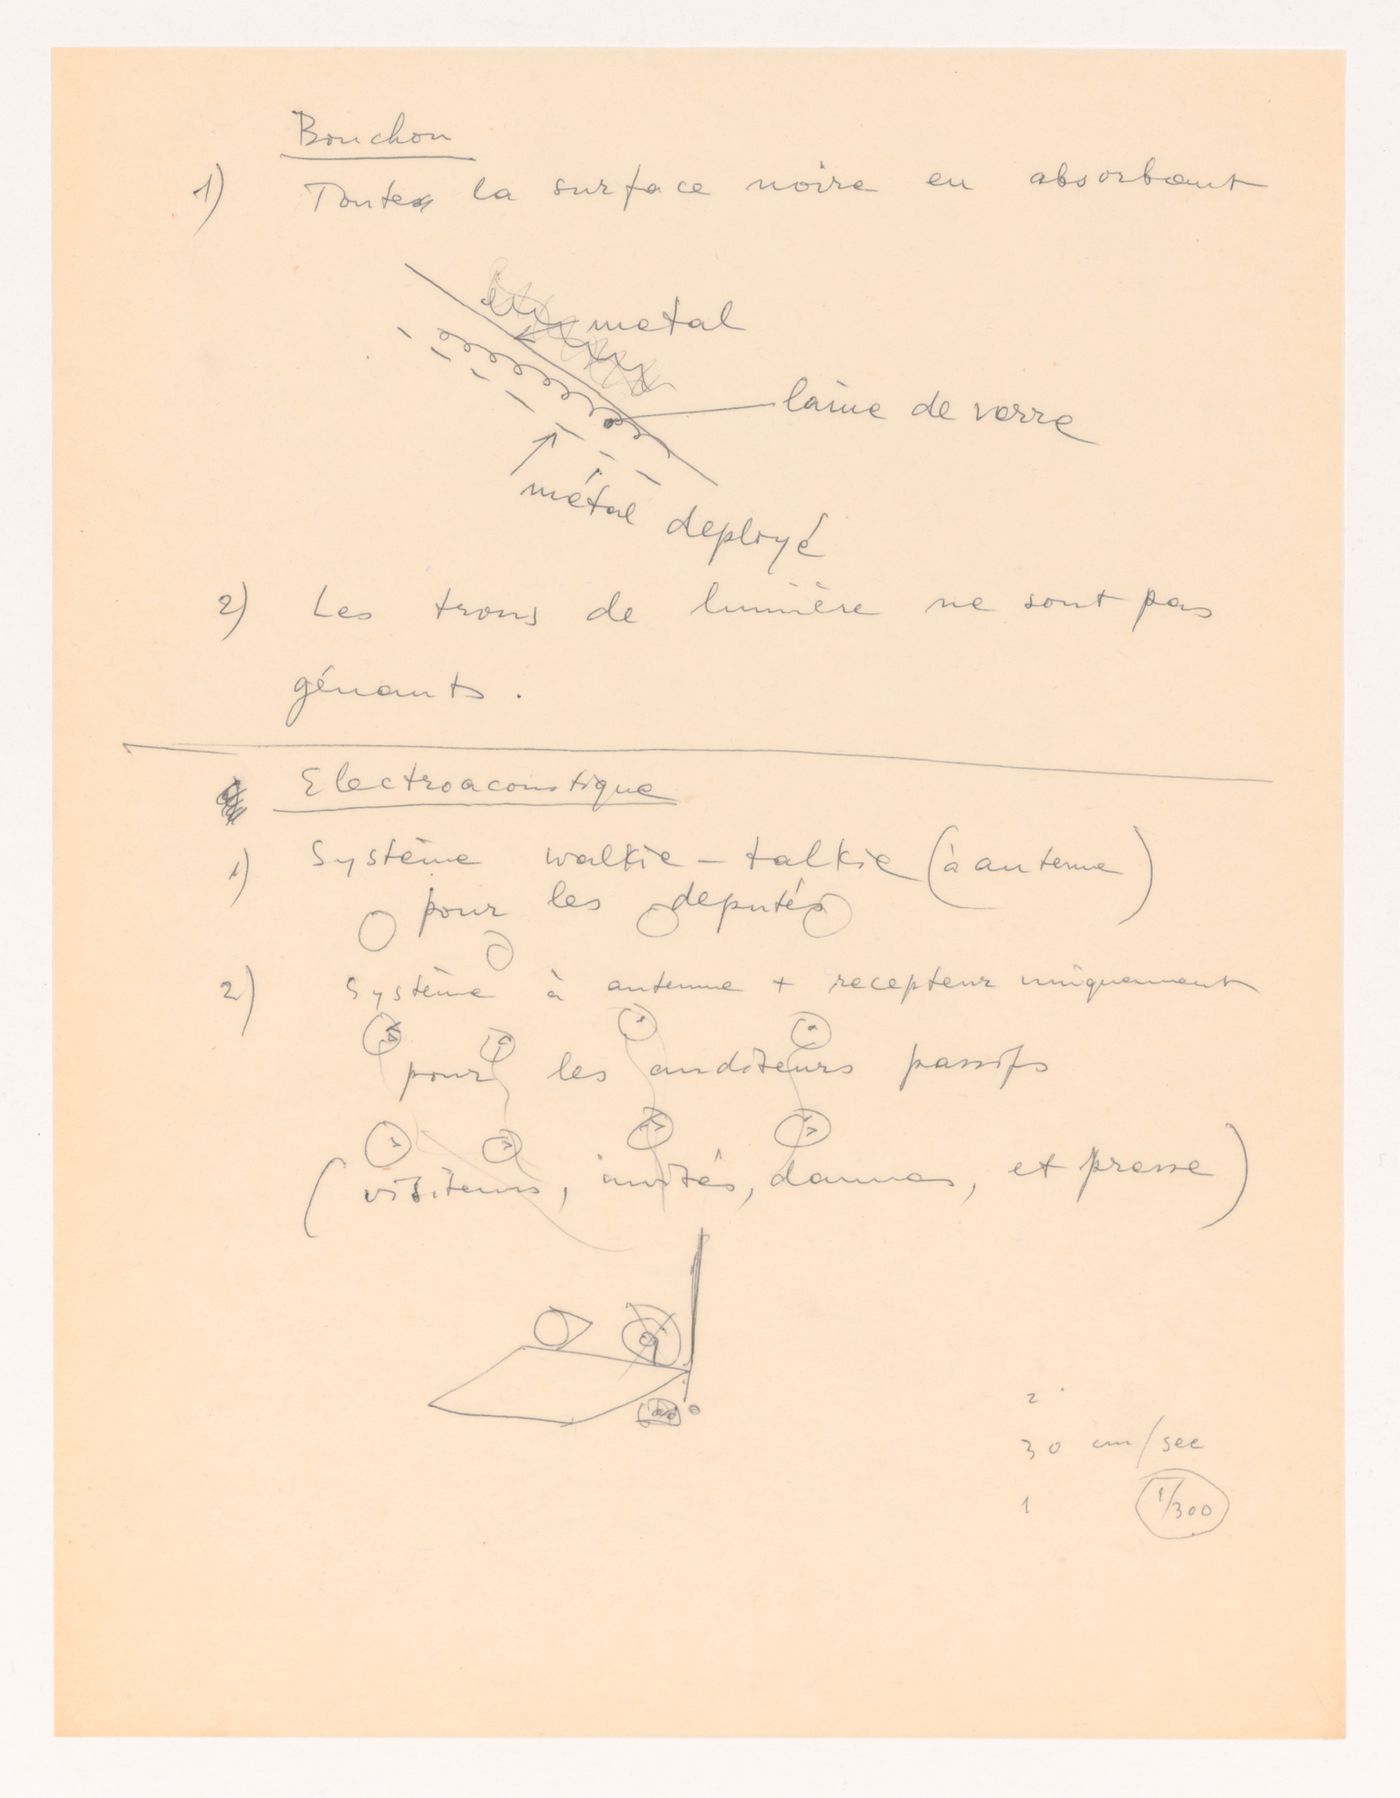 Bouchon
1) Toute la surface noire en absorbant
metal
laine de verre
métal deployé
2) Les trous de lumière ne sont pas
génants.
Electroacoustique
1) Système walkie-talkie (à antenne)
pour les deputés
2) Système à antenne + recepteur uniquement
pour les auditeurs passifs
(visiteurs, invités, dames, et presse)
2
30 cm/sec
1 1/300